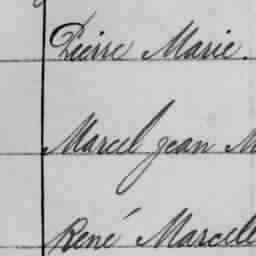 Pierre Marie.
Marcel Jean M
René Marcell